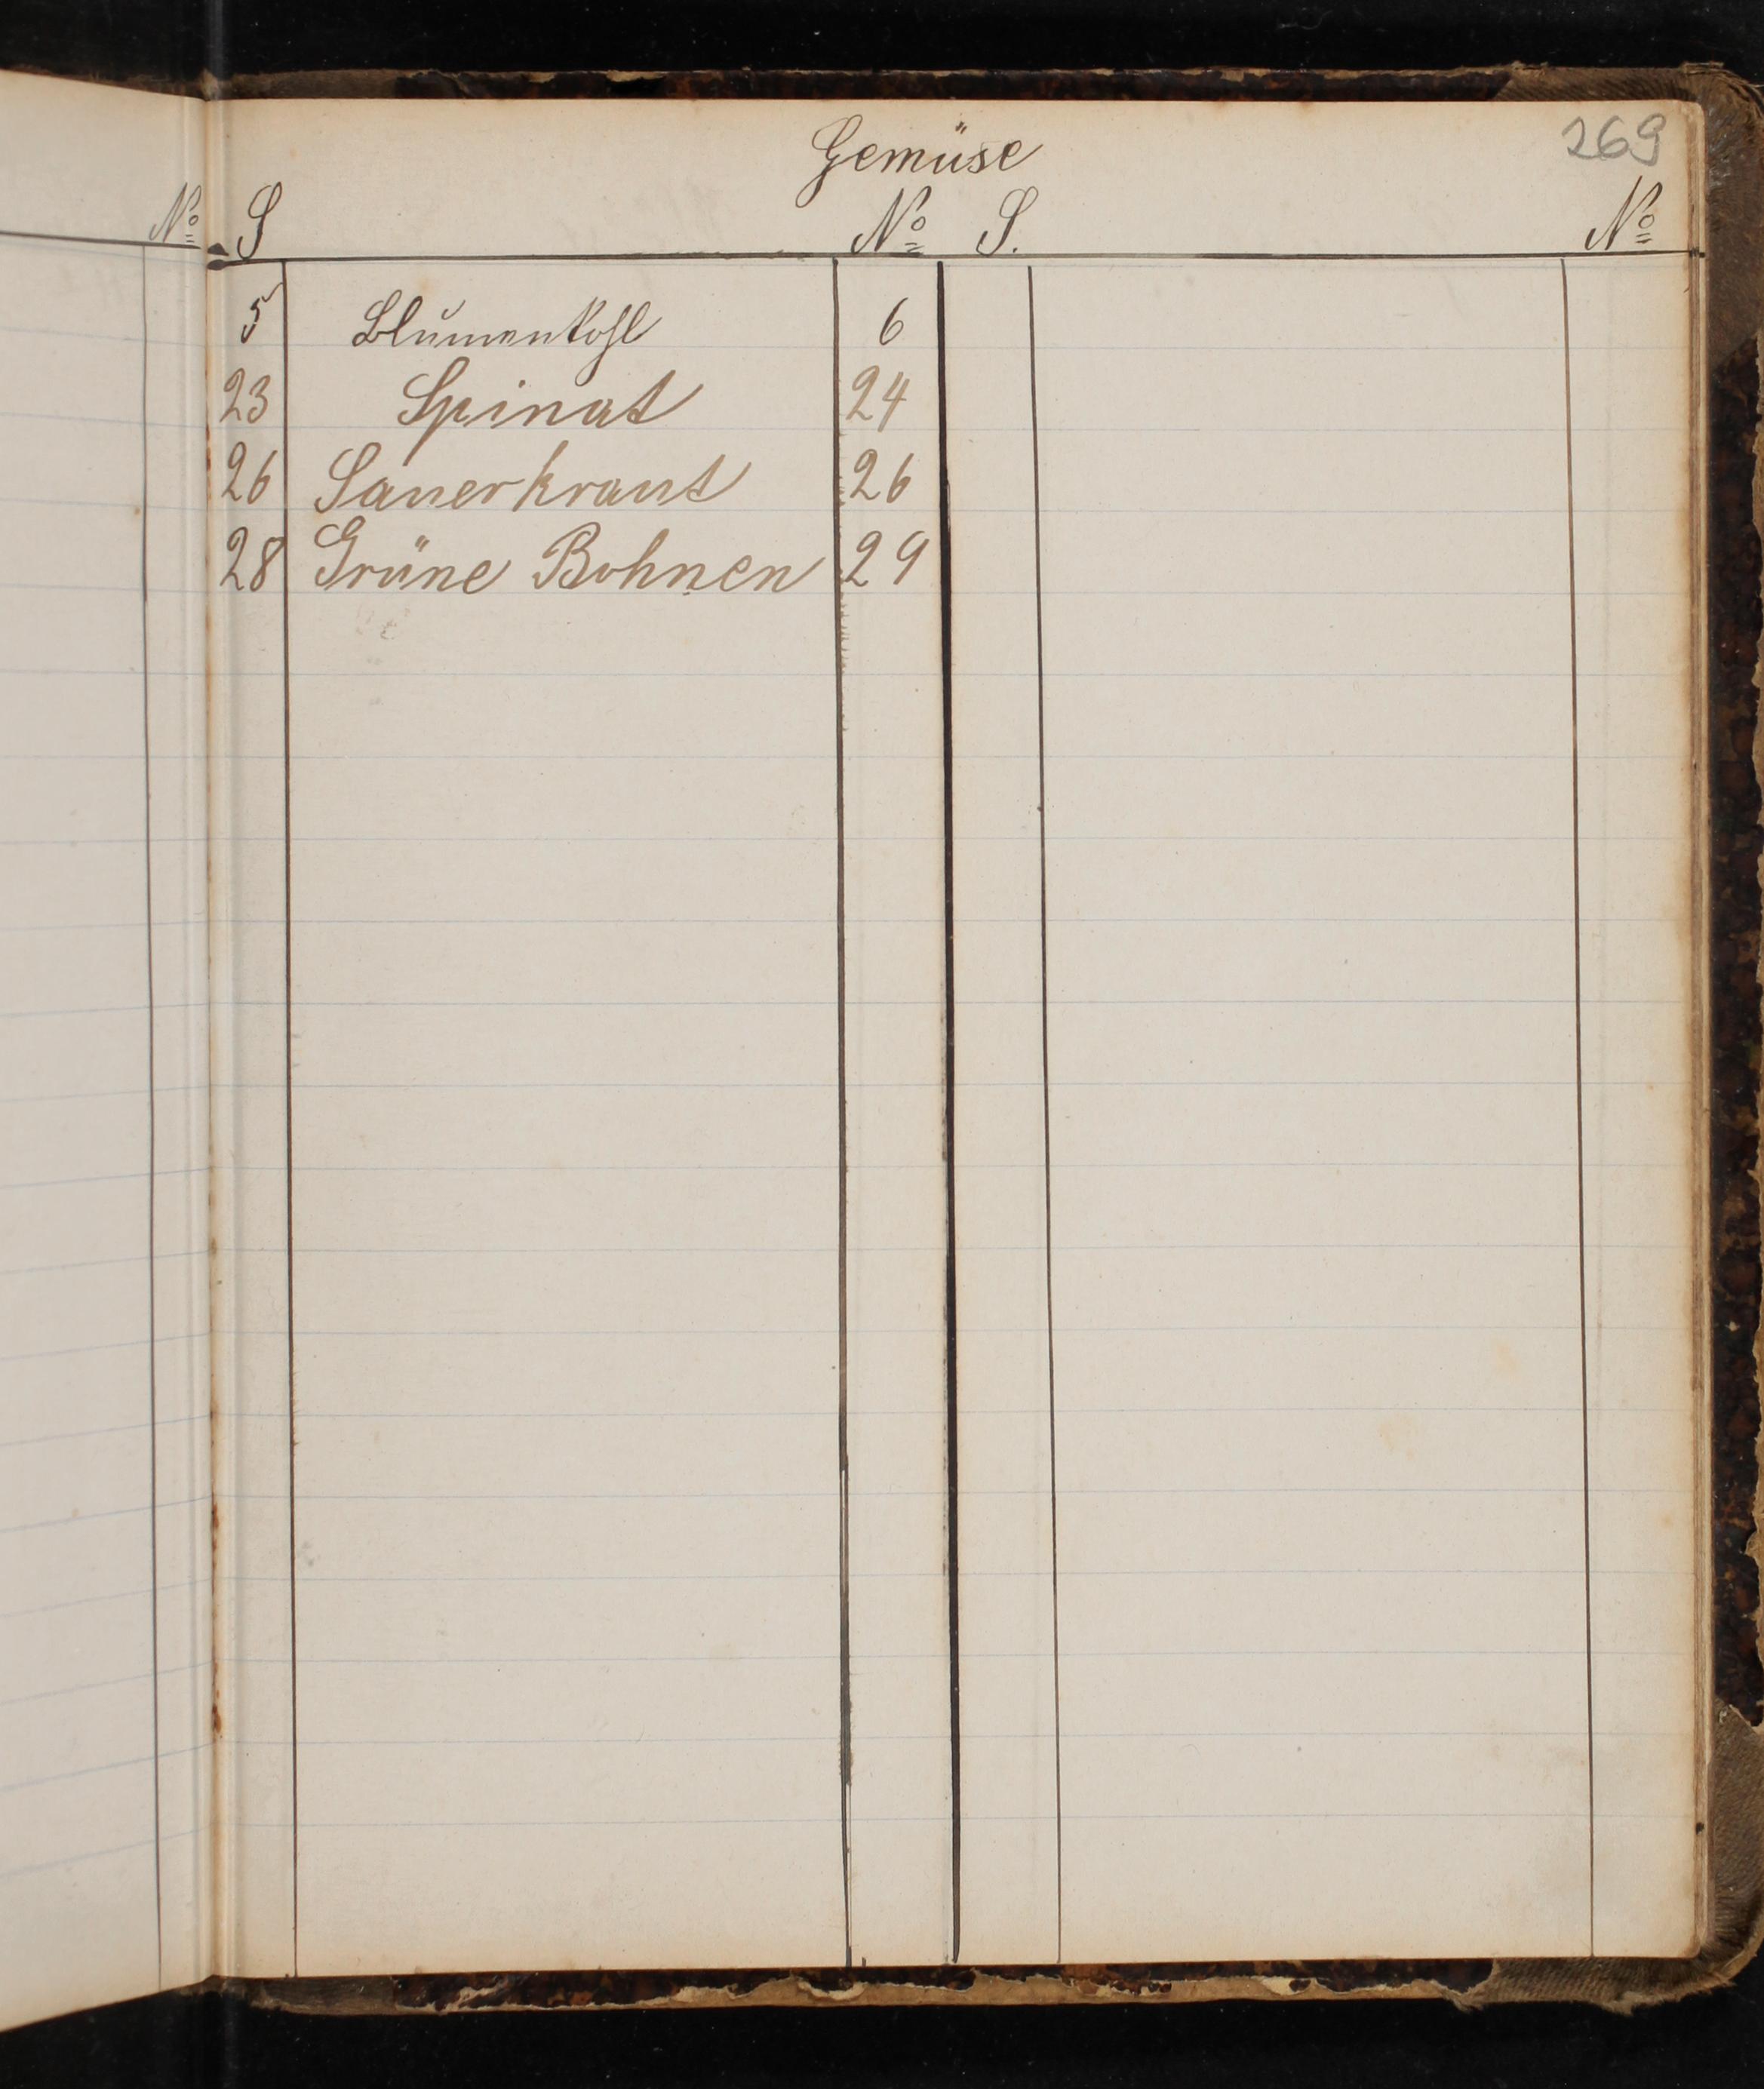 269
Gemüse
No S No S. No
5 Blumenkohl 6
23 Spinat 24
26 Sauerkraut 26
28 Grüne Bohnen 29